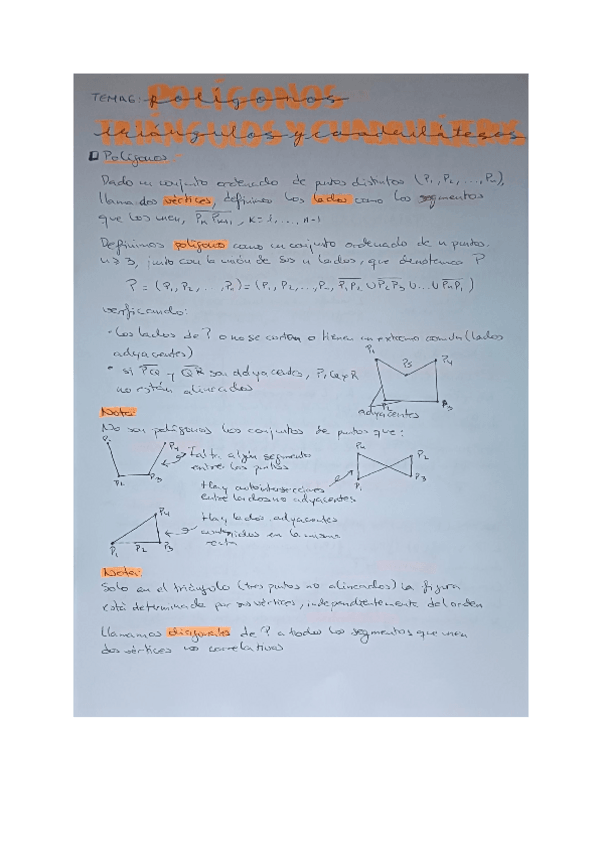 TEMA 6: POLÍGONOS
TRIÁNGULOS Y CUADRILÁTEROS
Polígonos
Dado un conjunto ordenado de puntos distintos (P₁, P₂, ..., Pₙ),
llamados vértices, definimos los lados como los segmentos
que los unen, PₖPₖ₊₁, k=1, ..., n-1
Definimos polígono como un conjunto ordenado de n puntos.
n≥3, junto con la unión de sus n lados, que denotamos P
P = (P₁, P₂, ..., Pₙ) = (P₁, P₂, ..., Pₙ, P₁P₂ ∪ P₂P₃ ∪ ... ∪ PₙP₁)
verificando:
· Los lados de P o no se cortan o tienen un extremo común (lados
adyacentes)
· si PQ y QR son adyacentes, P, Q y R
no están alineados
P₁
P₅
P₄
P₂
P₃
adyacentes
Nota:
No son polígonos los conjuntos de puntos que:
P₁
P₄
P₂
P₃
Falta algún segmento
entre los puntos
P₄
P₂
P₁
P₃
Hay autointersecciones
entre lados no adyacentes
P₄
P₁
P₂
P₃
Hay lados adyacentes
contenidos en la misma
recta
Nota:
Solo en el triángulo (tres puntos no alineados) la figura
está determinada por sus vértices, independientemente del orden
Llamamos diagonales de P a todos los segmentos que unen
dos vértices no correlativos